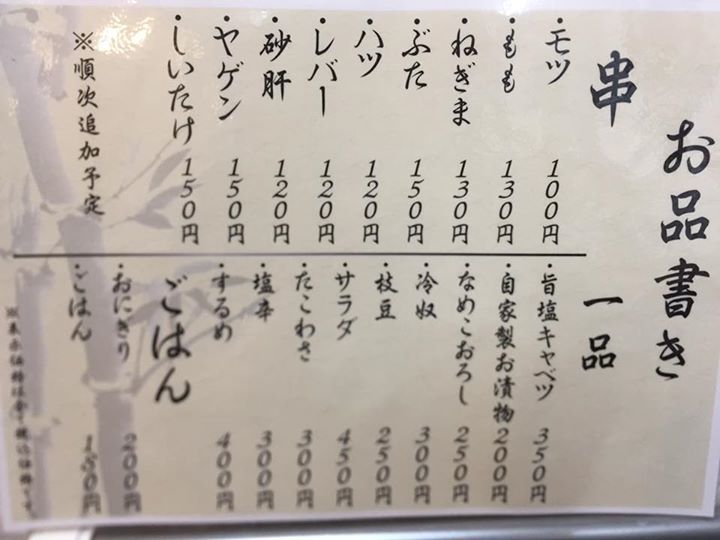 お品書き
串
・モツ 100円
・もも 130円
・ねぎま 130円
・ぶた 150円
・ハツ 120円
・レバー 120円
・砂肝 120円
・ヤゲン 150円
・しいたけ 150円
※順次追加予定
一品
・旨塩キャベツ 350円
・自家製お漬物 200円
・なめこおろし 250円
・冷奴 300円
・枝豆 250円
・サラダ 450円
・たこわさ 300円
・塩辛 300円
・するめ 400円
ごはん
・おにぎり 200円
・ごはん 150円
※表示価格は全て税込価格です。